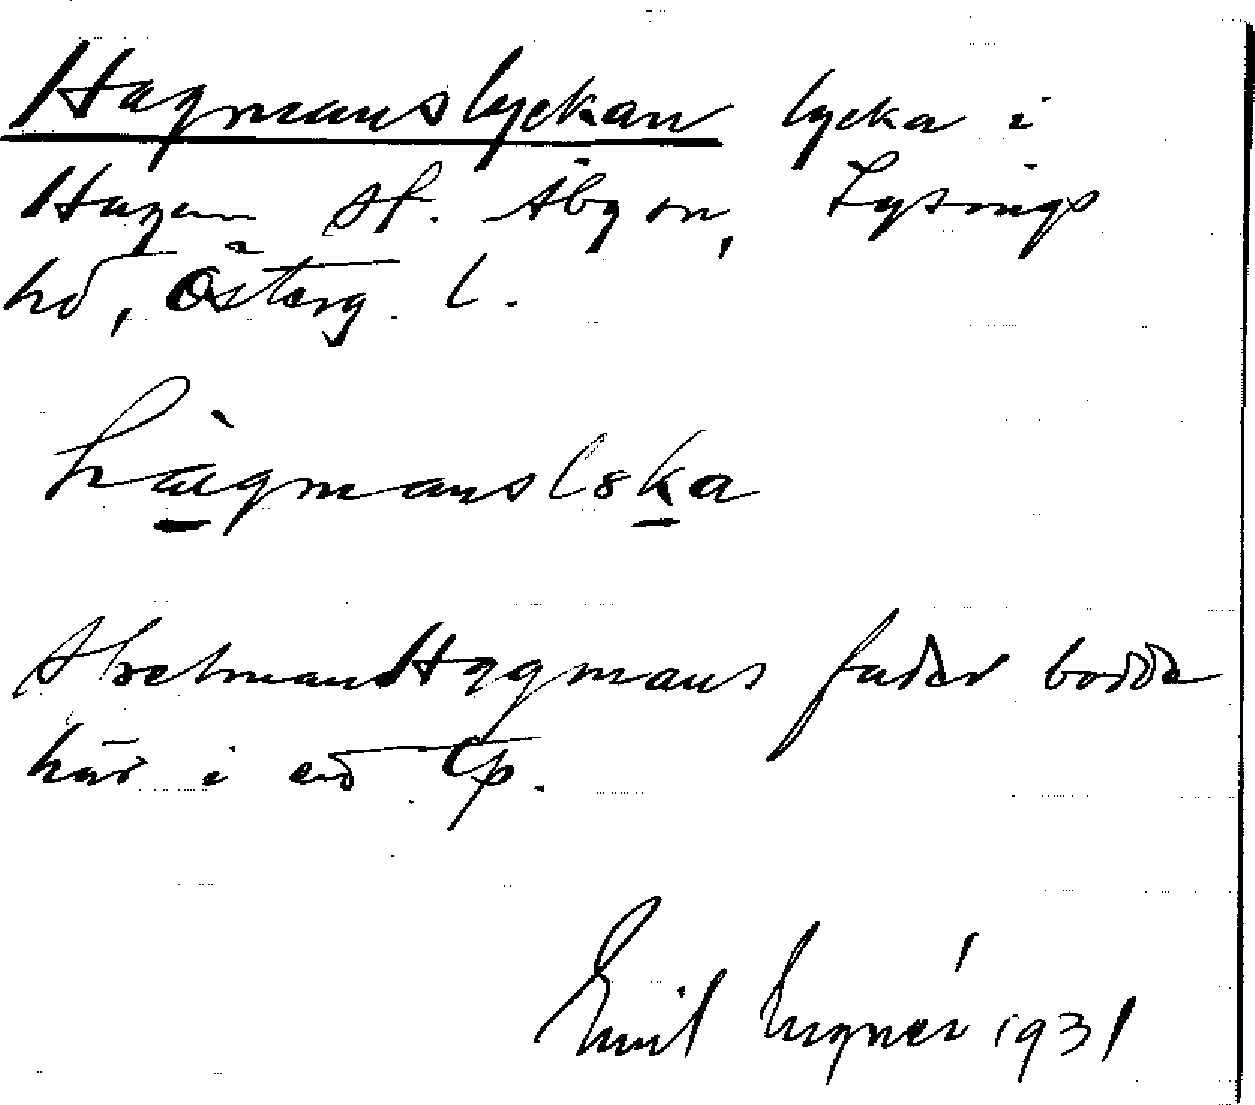 Hagmanslyckan lycka i
Hagen st. Åby sn, Lysings
hd, Österg. l.
hàgmanslska
Abrahman Hagmans fader bodde
här i ett tp.
Emil 1931